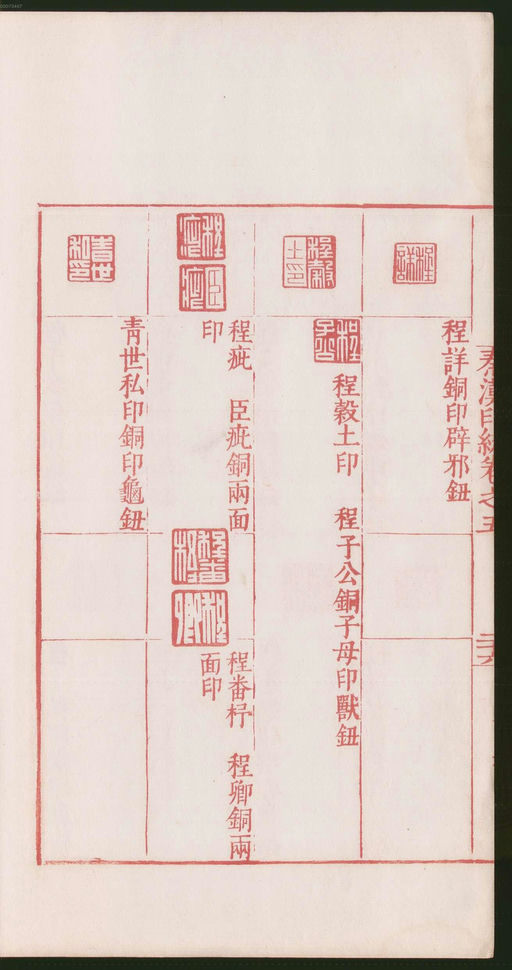 秦漢印統卷之五
二十六
程詳銅印辟邪鈕
程穀土印　程子公銅子母印獸鈕
程疵　臣疵銅兩面
印
程番杼　程卿銅兩
面印
青世私印銅印龜鈕